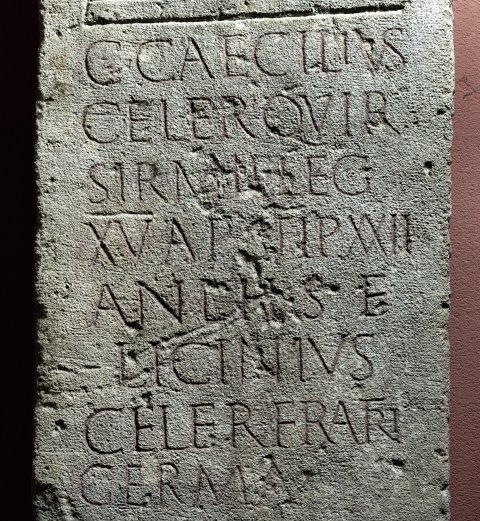 C CAECILIVS
CELER QVIR
LEG
XV AP STIP
AN S E
LICINIVS
CELER FRATRI
GERMA